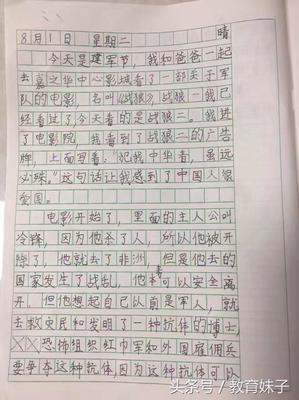 8月1日 星期二 晴
今天是建军节,我和爸爸一起
去嘉之华中心影城看了一部关于军
队的电影,名叫《战狼》,战狼一我已
经看过了今天看的是战狼二。我进
了电影院,我看到了战狼二的广告
牌,上面写着:“犯我中华者,虽远
必殊。”这句话让我感到了中国人很
爱国。
电影开始了,里面的主人公叫
冷锋,因为他杀了人,所以他被开
除了,他就去了非洲,但是他去的
国家发生了战乱,他本可以安全离
开,但他想起自己以前是军人,就
去救灾民和发明了一种抗体的博士,
恐怖组织红巾军和外国雇佣兵
要争夺这种抗体,因为这种抗体可以
头条号/教育妹子